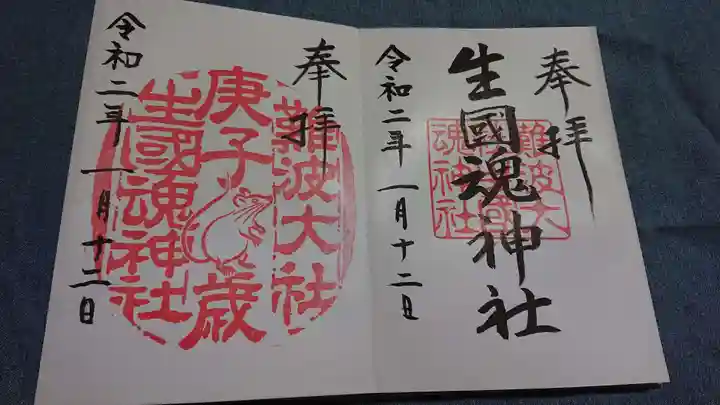 奉拝
難波大
社生國
魂神社
生國魂神社
令和二年一月十二日
奉拝
難波大社
庚子歳
生國魂神社
令和二年一月十二日